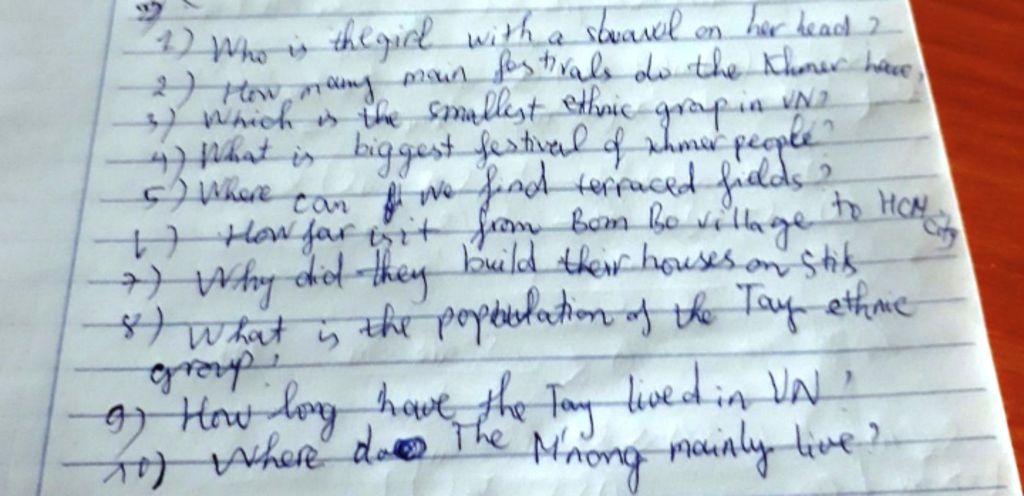 1) Who is the girl with a shawel on her head?
2) How many main festivals do the Khmer have,
3) Which is the smallest ethnic group in VN?
4) What is biggest festival of khmer people?
5) Where can we find terraced fields?
6) How far is it from Bom Bo village to HCM City
7) Why did they build their houses on
8) What is the population of the Tay ethnic
group?
9) How long have the Tay lived in VN?
10) Where do The M'nong mainly live?